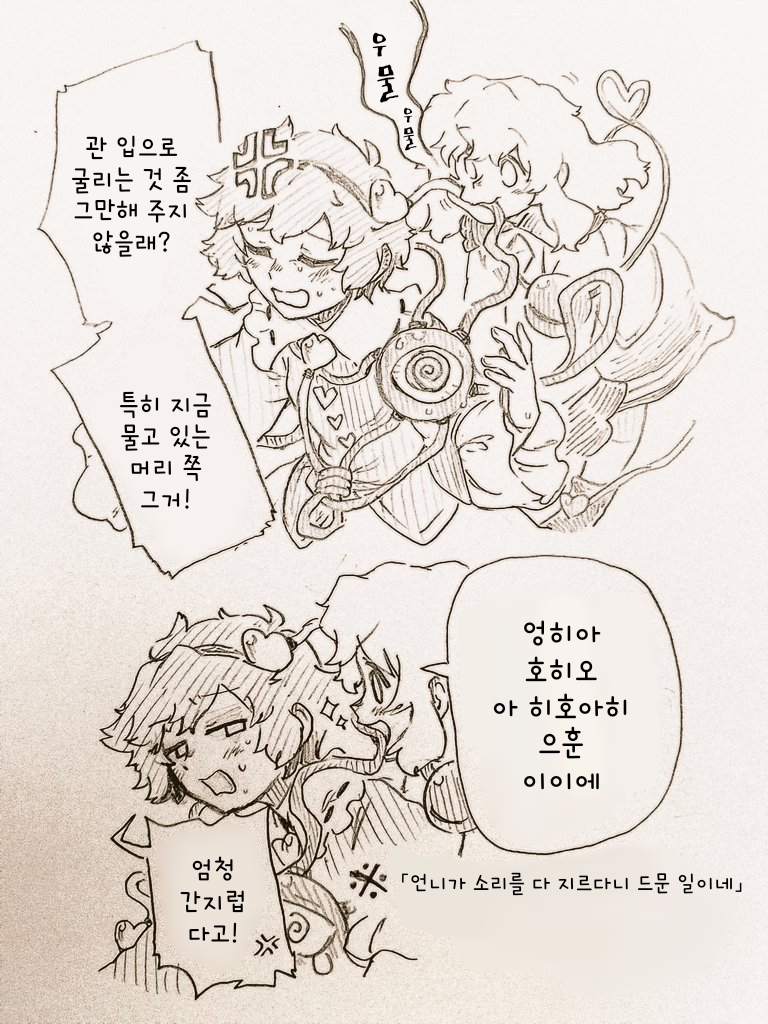 우물
우물
관 입으로
굴리는 것 좀
그만해 주지
않을래?
특히 지금
물고 있는
머리 쪽
그거!
엉히아
호히오
아 히호아히
으훈
이이에
엄청
간지럽
다고!
※「언니가 소리를 다 지르다니 드문 일이네」